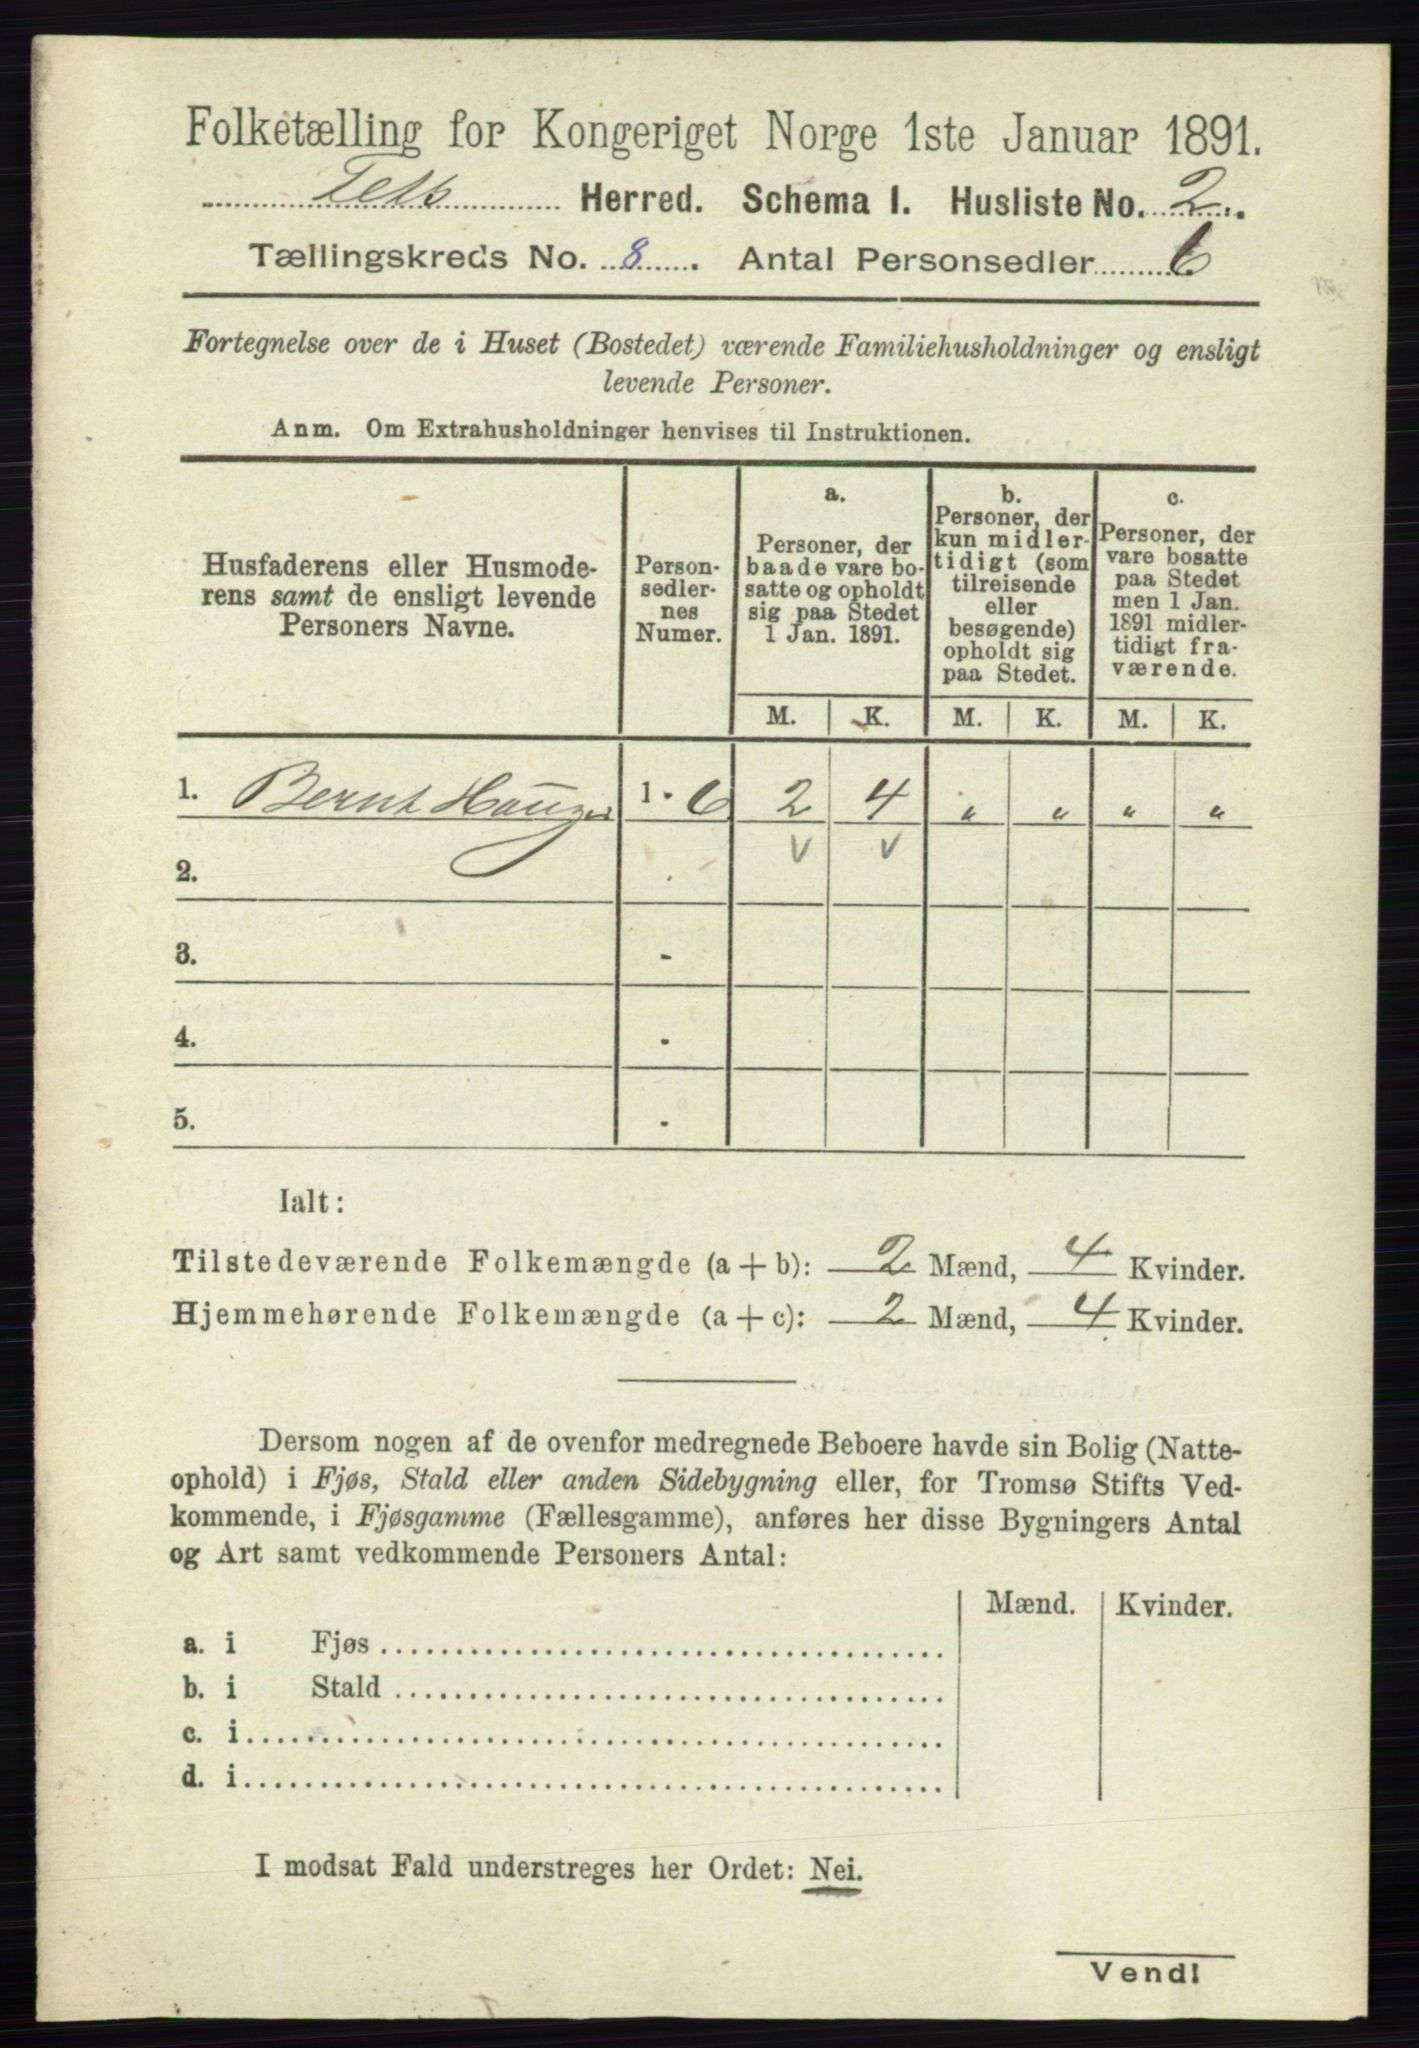 Folketælling for Kongeriget Norge 1ste Januar 1891.
Herred. Schema I. Husliste No. 2.
Tællingskreds No. 8. Antal Personsedler 6
Fortegnelse over de i Huset (Bostedet) værende Familiehusholdninger og ensligt
levende Personer.
Anm. Om Extrahusholdninger henvises til Instruktionen.
Husfaderens eller Husmode-
rens samt de ensligt levende
Personers Navne.
Person-
sedler-
nes
Numer.
a.
Personer, der
baade vare bo-
satte og opholdt
sig paa Stedet
1 Jan. 1891.
b.
Personer, der
kun midler-
tidigt (som
tilreisende
eller
besøgende)
opholdt sig
paa Stedet.
c.
Personer, der
vare bosatte
paa Stedet
men 1 Jan.
1891 midler-
tidigt fra-
værende.
M. K. M. K. M. K.
1. Bernt 1 - 6 2 4 " " " "
2. -
3. -
4. -
5. -
Ialt:
Tilstedeværende Folkemængde (a + b): 2 Mænd, 4 Kvinder.
Hjemmehørende Folkemængde (a + c): 2 Mænd, 4 Kvinder.
Dersom nogen af de ovenfor medregnede Beboere havde sin Bolig (Natte-
ophold) i Fjøs, Stald eller anden Sidebygning eller, for Tromsø Stifts Ved-
kommende, i Fjøsgamme (Fællesgamme), anføres her disse Bygningers Antal
og Art samt vedkommende Personers Antal:
Mænd. Kvinder.
a. i Fjøs
b. i Stald
c. i
d. i
I modsat Fald understreges her Ordet: Nei.
Vendl